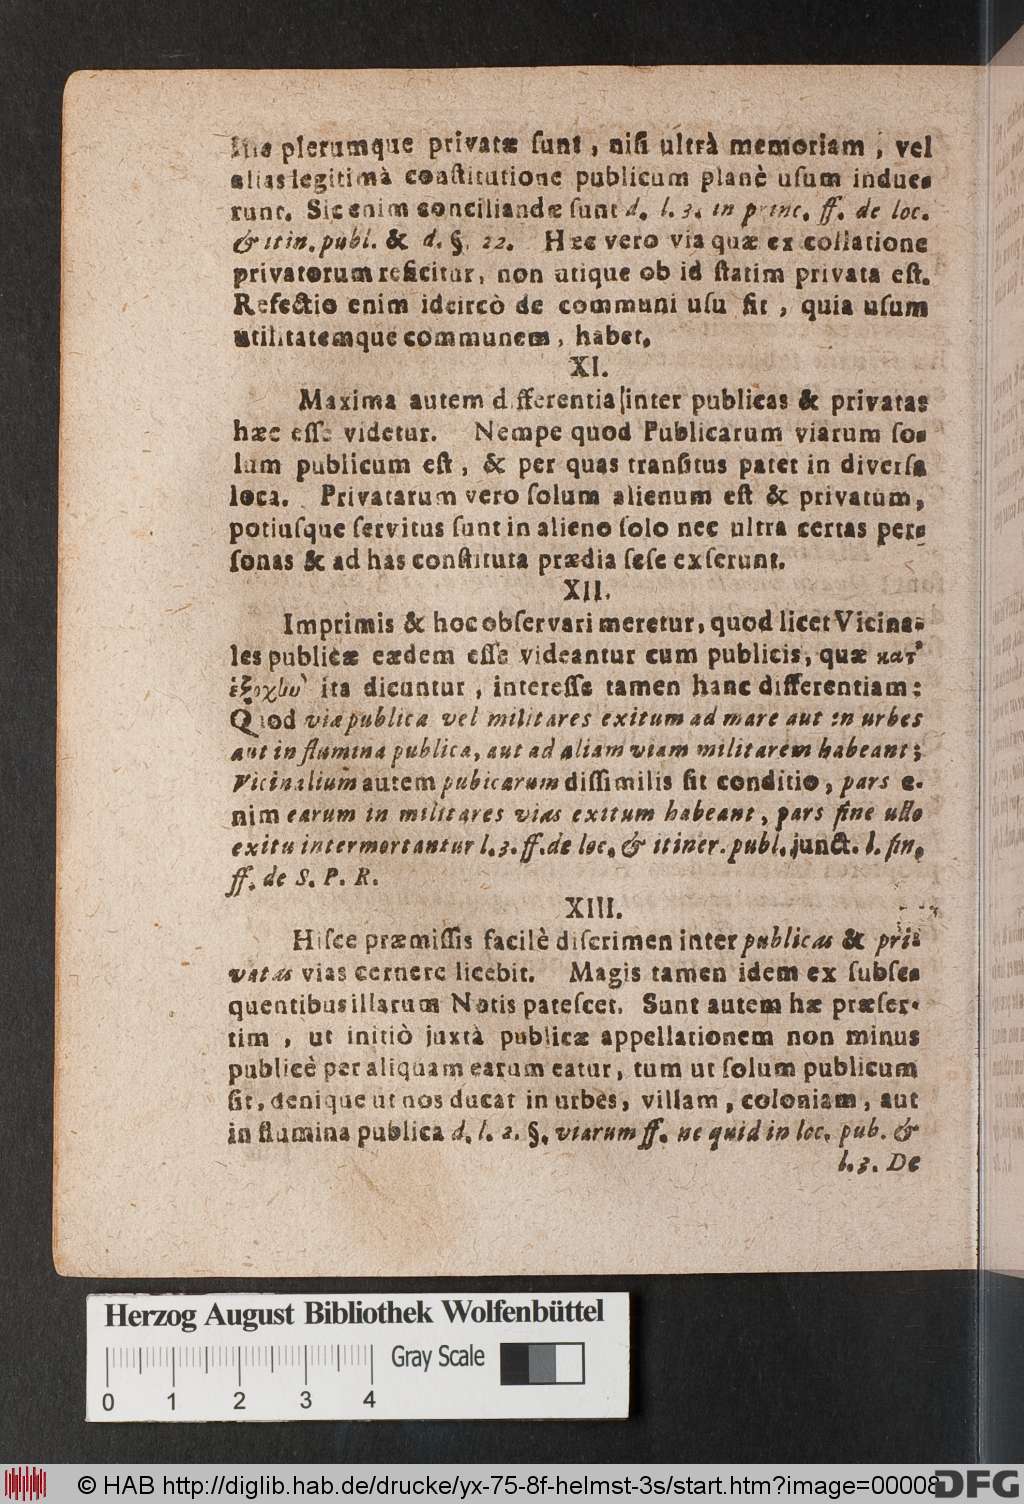 plerumque privatæ ſunt, niſi ultrà memoriam, vel
alias legitimà conſtitutione publicum planè uſum indue-
runt. Sic enim conciliandæ ſunt d. l. 3. in princ. ff. de loc.
& itin. publ. & d. §. 22. Hæc vero via quæ ex collatione
privatorum reficitur, non utique ob id ſtatim privata eſt.
Refectio enim idcircò de communi uſu fit, quia uſum
utilitatemque communem, habet.
XI.
Maxima autem differentia inter publicas & privatas
hæc eſſe videtur. Nempe quod Publicarum viarum ſo-
lum publicum eſt, & per quas tranſitus patet in diverſa
loca. Privatarum vero ſolum alienum eſt & privatum,
potiuſque ſervitus ſunt in alieno ſolo nec ultra certas per-
ſonas & ad has conſtituta prædia ſeſe exſerunt.
XII.
Imprimis & hoc obſervari meretur, quod licet Vicina-
les publicæ eædem eſſe videantur cum publicis, quæ κατ'
ἐξοχὴν ita dicuntur, intereſſe tamen hanc differentiam:
Quod viæ publica vel militares exitum ad mare aut in urbes
aut in flumina publica, aut ad aliam viam militarem habeant;
Vicinalium autem pubicarum diſſimilis ſit conditio, pars e-
nim earum in militares vias exitum habeant, pars ſine ullo
exitu intermortantur l. 3. ff. de loc. & itiner. publ. junct. l. fin.
ff. de S. P. R.
XIII.
Hiſce præmiſſis facilè diſcrimen inter publicas & pri-
vatas vias cernere licebit. Magis tamen idem ex ſubſe-
quentibus illarum Notis pateſcet. Sunt autem hæ præſer-
tim, ut initiò juxtà publicæ appellationem non minus
publicè per aliquam earum eatur, tum ut ſolum publicum
ſit, denique ut nos ducat in urbes, villam, coloniam, aut
in flumina publica d. l. 2. §. viarum ff. ne quid in loc. pub. &
l. 3. De
Herzog August Bibliothek Wolfenbüttel
Gray Scale
0 1 2 3 4
© HAB http://diglib.hab.de/drucke/yx-75-8f-helmst-3s/start.htm?image=00008
DFG